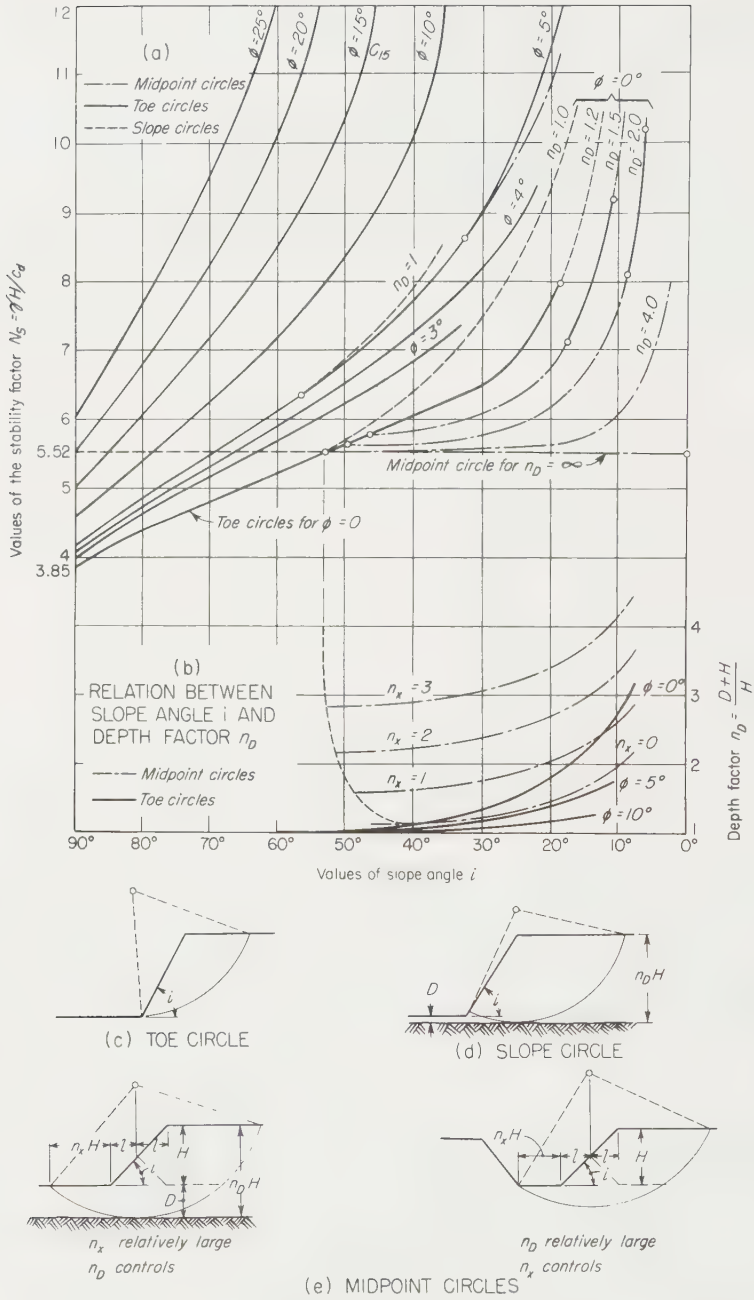 12
11
10
9
8
7
6
5.52
5
4
3.85
Values of the stability factor N_S = γH/c_d
(a)
Midpoint circles
Toe circles
Slope circles
ϕ = 25°
ϕ = 20°
ϕ = 15°
C₁₅
ϕ = 10°
ϕ = 5°
ϕ = 0°
n_D = 1.0
n_D = 1.2
n_D = 1.5
n_D = 2.0
ϕ = 4°
n_D = 1
ϕ = 3°
n_D = 4.0
Midpoint circle for n_D = ∞
Toe circles for ϕ = 0
(b)
RELATION BETWEEN
SLOPE ANGLE i AND
DEPTH FACTOR n_D
Midpoint circles
Toe circles
n_x = 3
n_x = 2
n_x = 1
n_x = 0
ϕ = 0°
ϕ = 5°
ϕ = 10°
4
3
2
1
Depth factor n_D = (D + H)/H
90° 80° 70° 60° 50° 40° 30° 20° 10° 0°
Values of slope angle i
i
(c) TOE CIRCLE
D
i
n_D H
(d) SLOPE CIRCLE
n_x H
l
l
H
i
D
n_D H
n_x relatively large
n_D controls
n_x H
l
l
H
i
n_D relatively large
n_x controls
(e) MIDPOINT CIRCLES